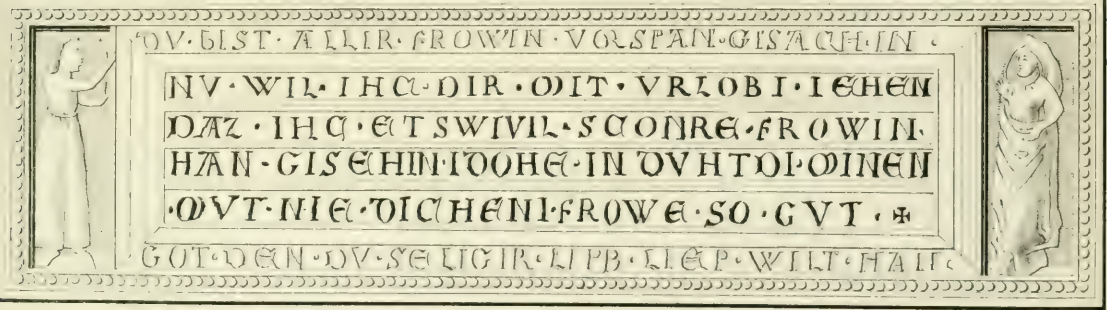 DV·BIST·ALLIR·FROWIN·VOLSPAN·GISACH·IN
NV·WIL·IHC·DIR·MIT·VRLOBI·IEHEN
DAZ·IHC·ETSWIVIL·SCONRE·FROWIN·
HAN·GISEHIN·IDOHE·IN DVHTDI·MINEN
·MVT·NIE·DICHENI·FROWE·SO·GVT·✠
GOT·DEN·DV·SELIGIR·LIPB·LIEP·WILT·HAN